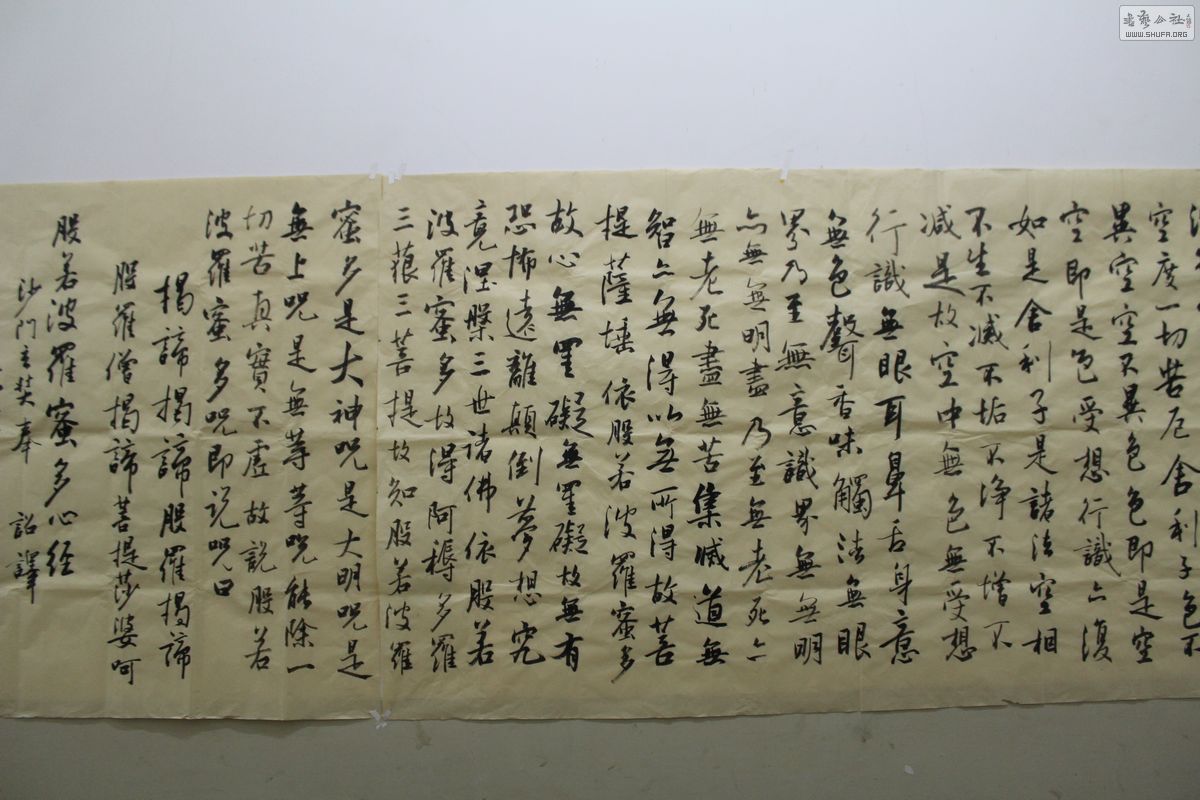 空度一切苦厄舍利子色不
異空空不異色色即是空
空即是色受想行識亦復
如是舍利子是諸法空相
不生不滅不垢不净不增不
減是故空中無色無受想
行識無眼耳鼻舌身意
無色聲香味觸法無眼
界乃至無意識界無無明
亦無無明盡乃至無老死亦
無老死盡無苦集滅道無
智亦無得以無所得故菩
提薩埵依般若波羅蜜多
故心無罣礙無罣礙故無有
恐怖遠離顛倒夢想究
竟涅槃三世諸佛依般若
波羅蜜多故得阿耨多羅
三藐三菩提故知般若波羅
蜜多是大神咒是大明咒是
無上咒是無等等咒能除一
切苦真實不虛故説般若
波羅蜜多咒即说咒曰
揭諦揭諦般羅揭諦
般羅僧揭諦菩提莎婆呵
般若波羅蜜多心经
沙门玄奘奉 詔譯
書藝公社
WWW.SHUFA.ORG